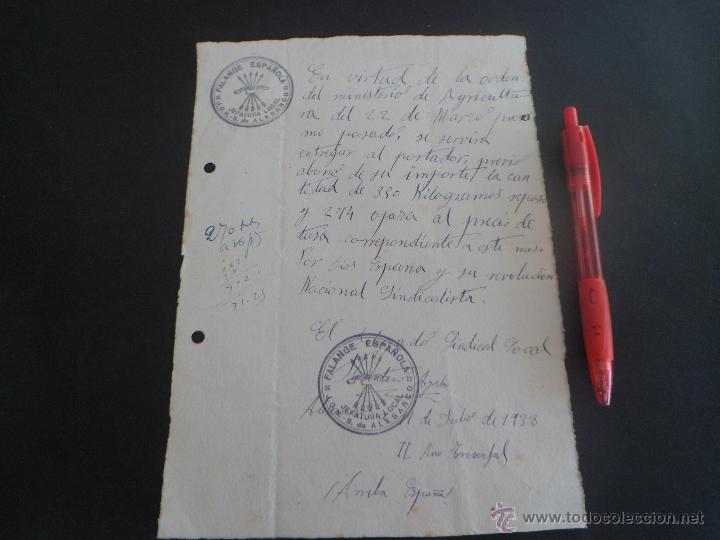 FALANGE ESPAÑOLA
JEFATURA LOCAL
J.O.N.-S. de ALESANCO
En virtud de la orden
del ministerio de Agricultu
ra del 22 de Marzo proxi
mo pasado, se servira
entregar al portador, previo
abono de su importe la can
tidad de 350 Kilogramos
y 274 para al precio de
tasa correpondiente a este mes
Por Dios España y su revolucion
Nacional Sindicalista.
El Sindical Local
FALANGE ESPAÑOLA
JEFATURA LOCAL
J.O.N.-S. de ALESANCO
de Julio de 1938
II Año Triunfal
¡Arriba España!
270
www.todocoleccion.net